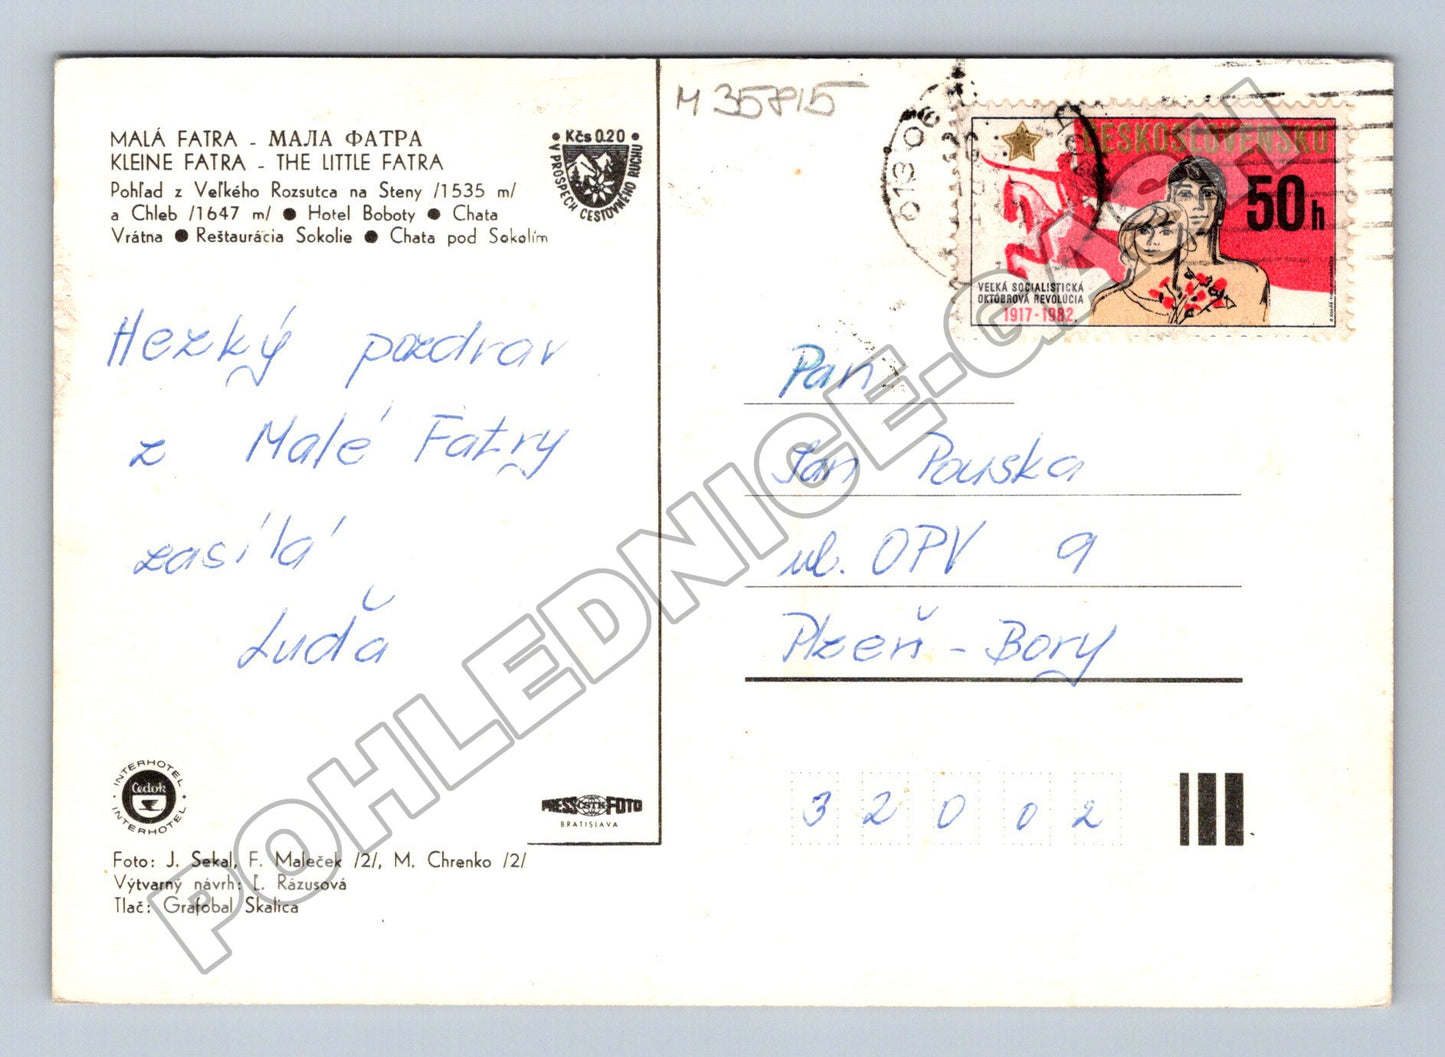 M 35815
MALÁ FATRA - МАЛА ФАТРА
KLEINE FATRA - THE LITTLE FATRA
Pohľad z Veľkého Rozsutca na Steny /1535 m/
a Chleb /1647 m/ ● Hotel Boboty ● Chata
Vrátna ● Reštaurácia Sokolie ● Chata pod Sokolím
• Kčs 0.20 •
V PROSPECH CESTOVNÉHO RUCHU
013 06
ČESKOSLOVENSKO
50 h
VELKÁ SOCIALISTICKÁ
OKTÓBROVÁ REVOLÚCIA
1917-1982
Hezký pozdrav
z Malé Fatry
zasílá
Luďa
Pan
Jan Pouska
ul. OPV 9
Plzeň - Bory
32002
INTERHOTEL
Čedok
INTERHOTEL
PRESS ČSTK FOTO
BRATISLAVA
Foto: J. Sekal, F. Maleček /2/, M. Chrenko /2/
Výtvarný návrh: Ľ. Rázusová
Tlač: Grafobal Skalica
POHLEDNICE-GASH